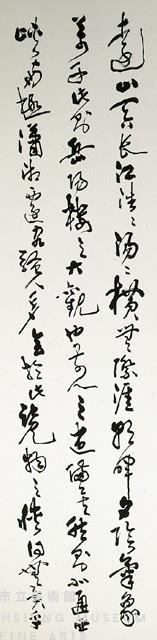 遠山吞長江浩〻湯〻橫無際涯朝暉夕陰氣象
萬千此則岳陽樓之大觀也前人之述備矣然則北通巫
峽南極瀟湘遷客騷人多會於此覽物之情得無異乎
市立美術館
HSIUNG MUSEUM
FINE ARTS